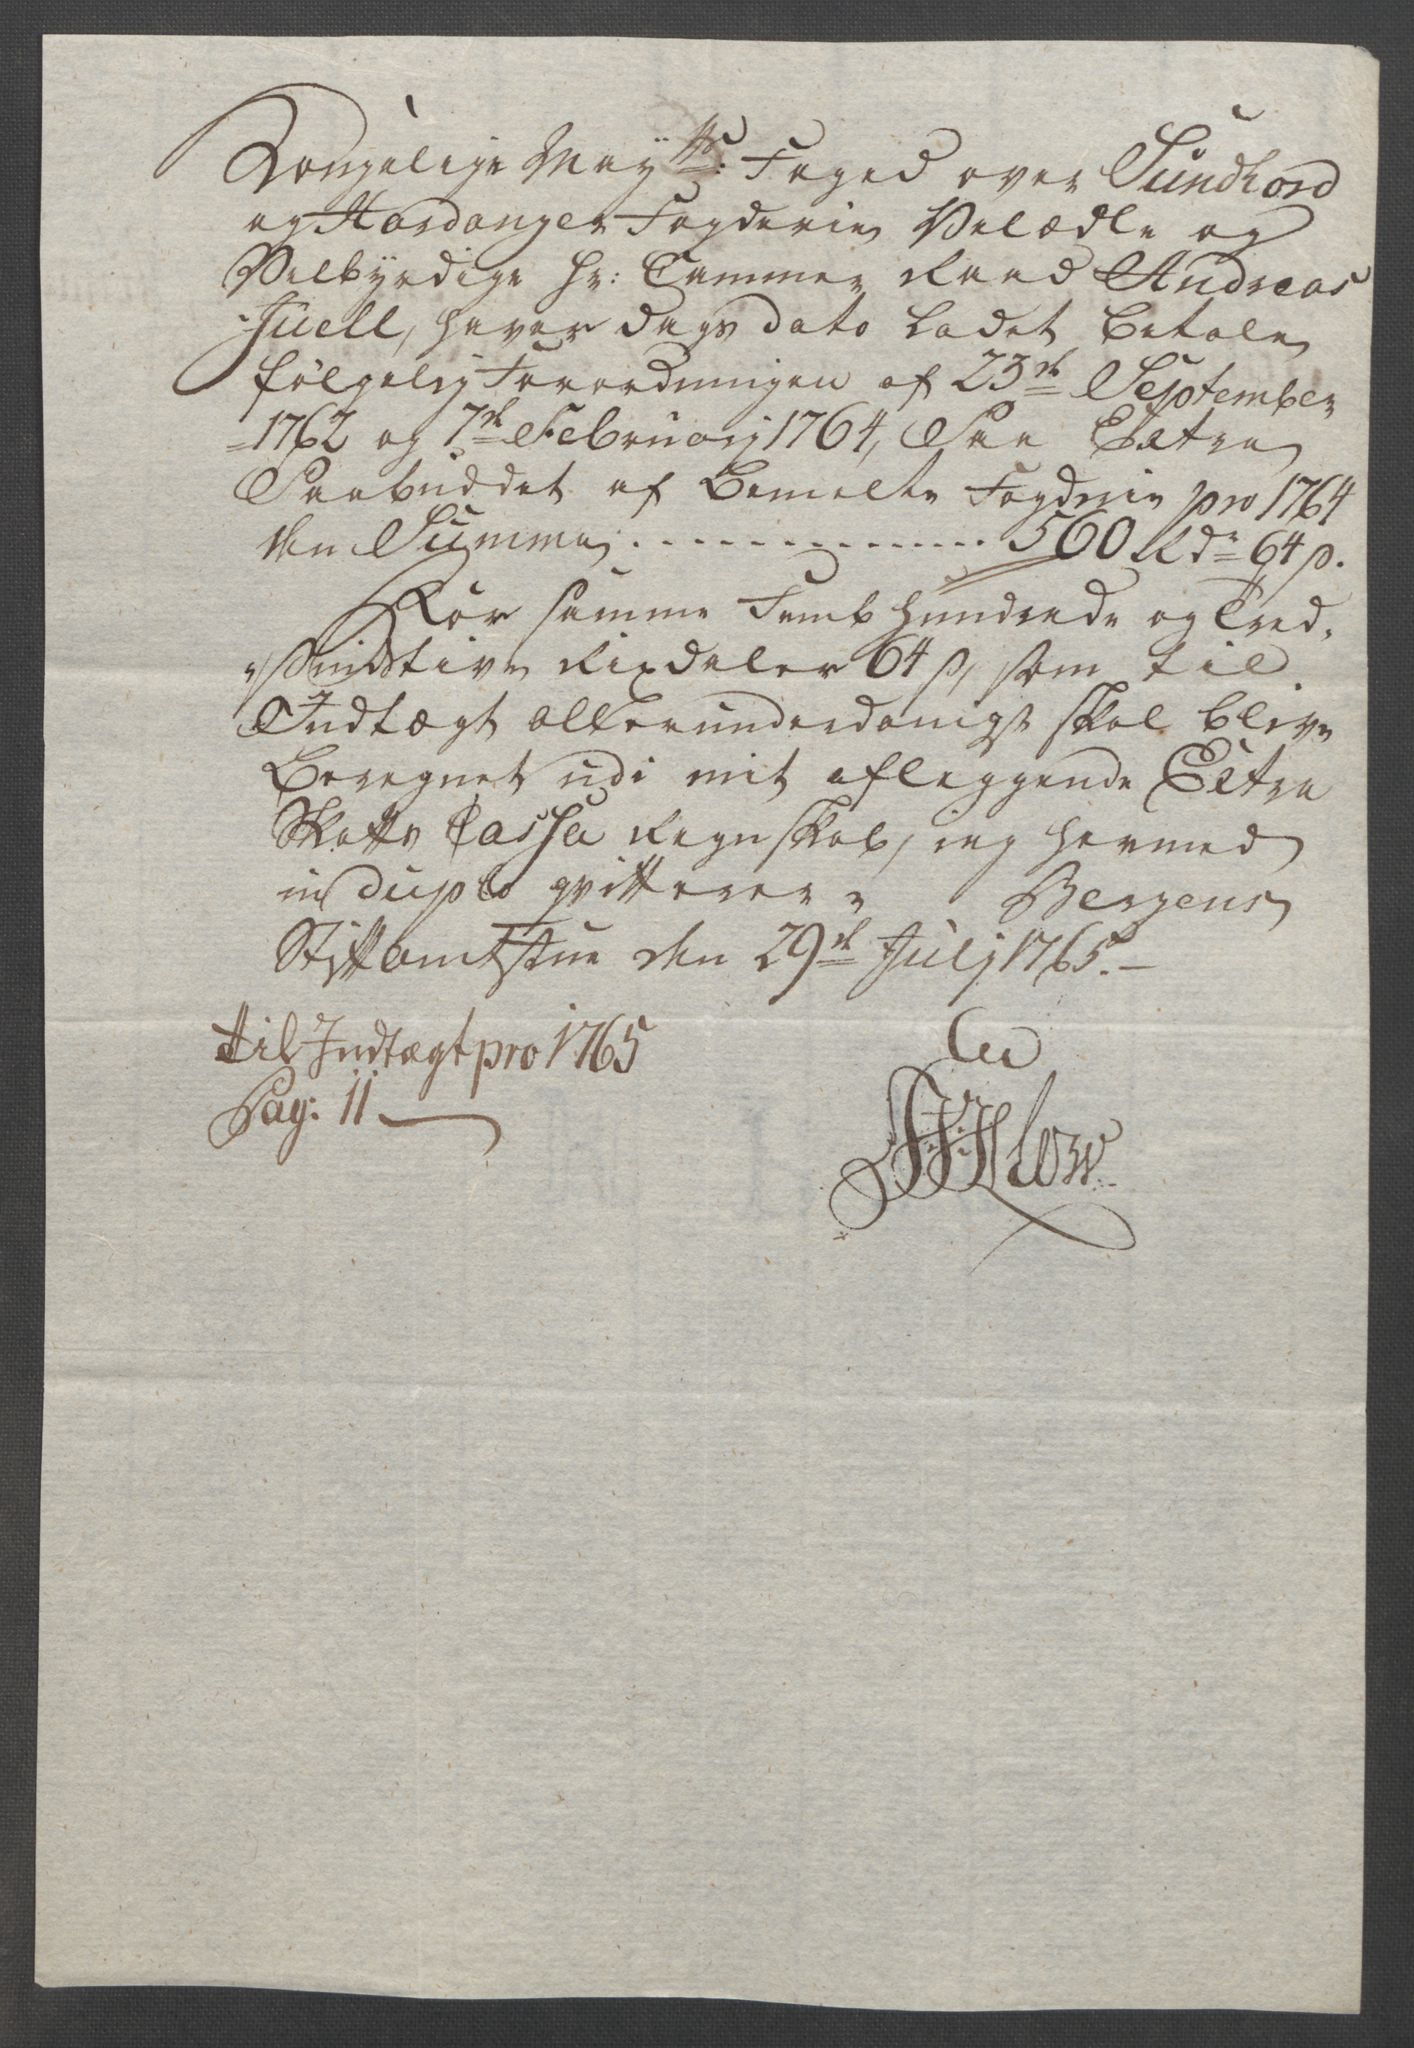 Kongelige Mayts: Foged over Sundhord
og Hardanger Fogderie Velædle og
Velbyrdige Hr: Cammer Raad Andreas
Juell, haver dags dato ladet betale
følgelig Forordningen af 23de September
1762 og 7de Februarij 1764, Paa Extra
Paabuddet af bemelte Fogderie pro 1764
den Summa . . . . . . . . . . . . . . 560 Rdr 64 s.
For samme Femb hundrede og Tred-
sindstive Rixdaler 64 s, som til
Indtægt allerunderdanigst skal blive
Beregnet udi mit afleggende Extra
Skatts Cassa Regnskab, ieg hermed
in duplo qvitterer. Bergens
Stiftamtstue den 29de Julj 1765.
til Indtægt pro 1765
Pag: 11
Klow